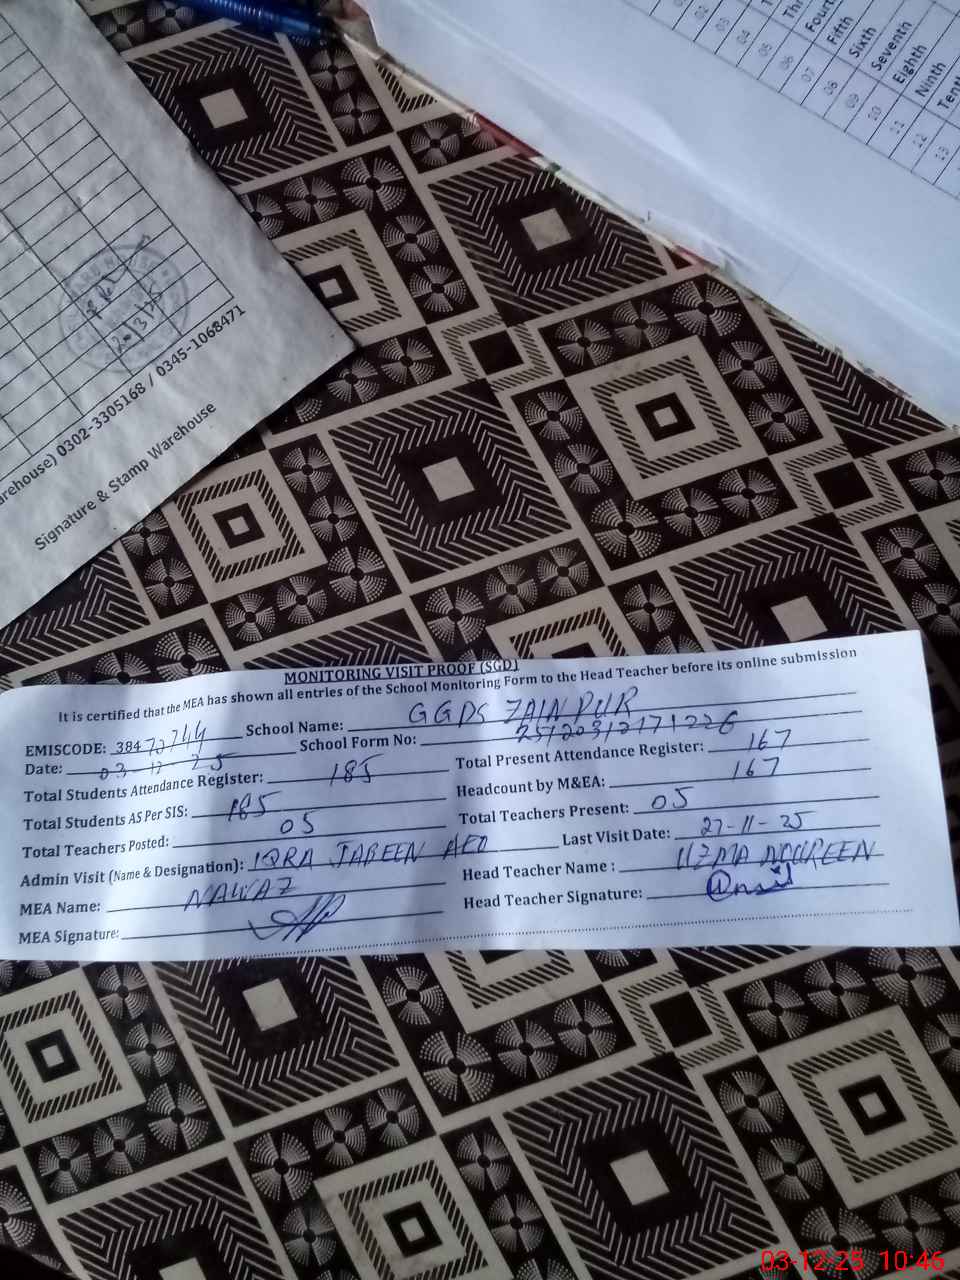 01
02
03
04
05
06
07 Fourth
08 Fifth
09 Sixth
10 Seventh
11 Eighth
12 Ninth
13
0302-3305168 / 0345-1068471
Signature & Stamp Warehouse
MONITORING VISIT PROOF (SGD)
It is certified that the MEA has shown all entries of the School Monitoring Form to the Head Teacher before its online submission
EMISCODE: 384 School Name: GGPS ZAINPUR
Date: 03-12-25 School Form No:
Total Students Attendance Register: 185 Total Present Attendance Register: 167
Total Students AS Per SIS: 185 Headcount by M&EA: 167
Total Teachers Posted: 05 Total Teachers Present: 05
Admin Visit (Name & Designation): IQRA JABEEN AEO Last Visit Date: 27-11-25
MEA Name: NAWAZ Head Teacher Name : UZMA NOUREEN
MEA Signature: Head Teacher Signature:
03-12-25 10:46